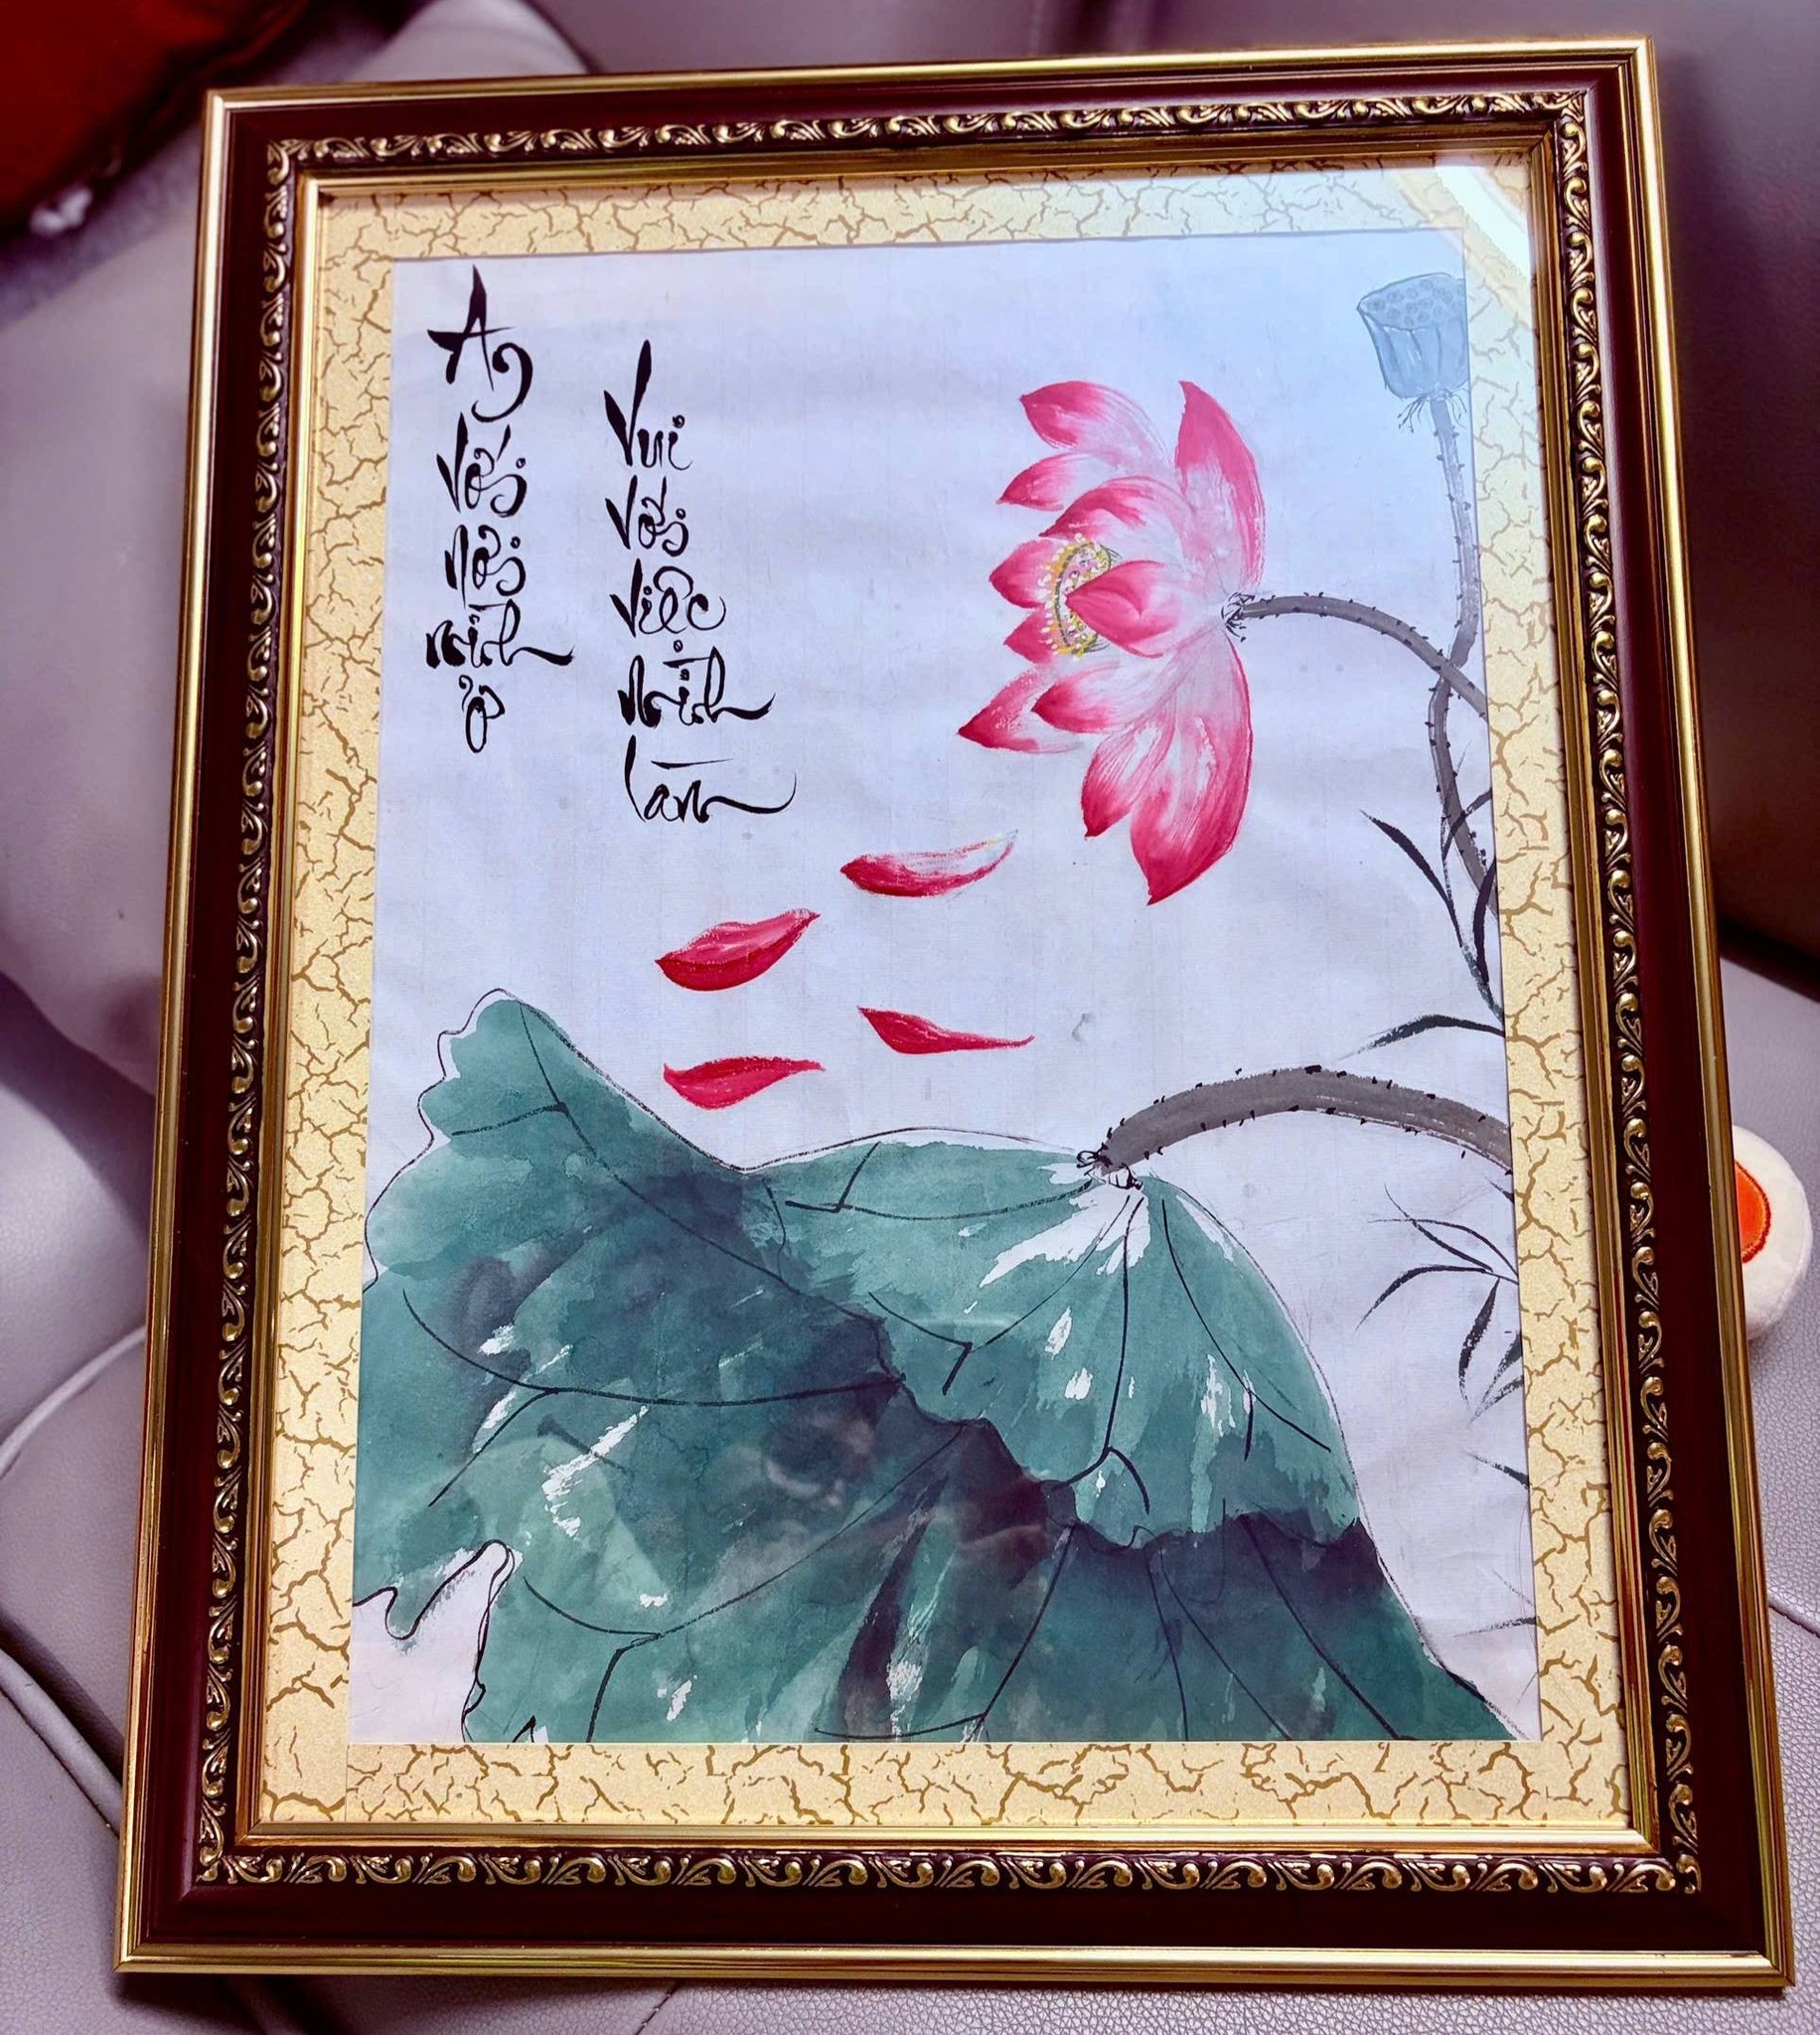 An
với
nơi
mình
ở
Vui
với
việc
mình
làm